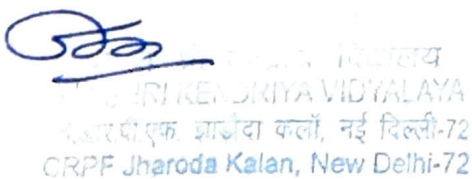 विद्यालय
SHRI KENDRIYA VIDYALAYA
सी.आर.पी.एफ. झाड़ौदा कलाँ, नई दिल्ली-72
CRPF Jharoda Kalan, New Delhi-72